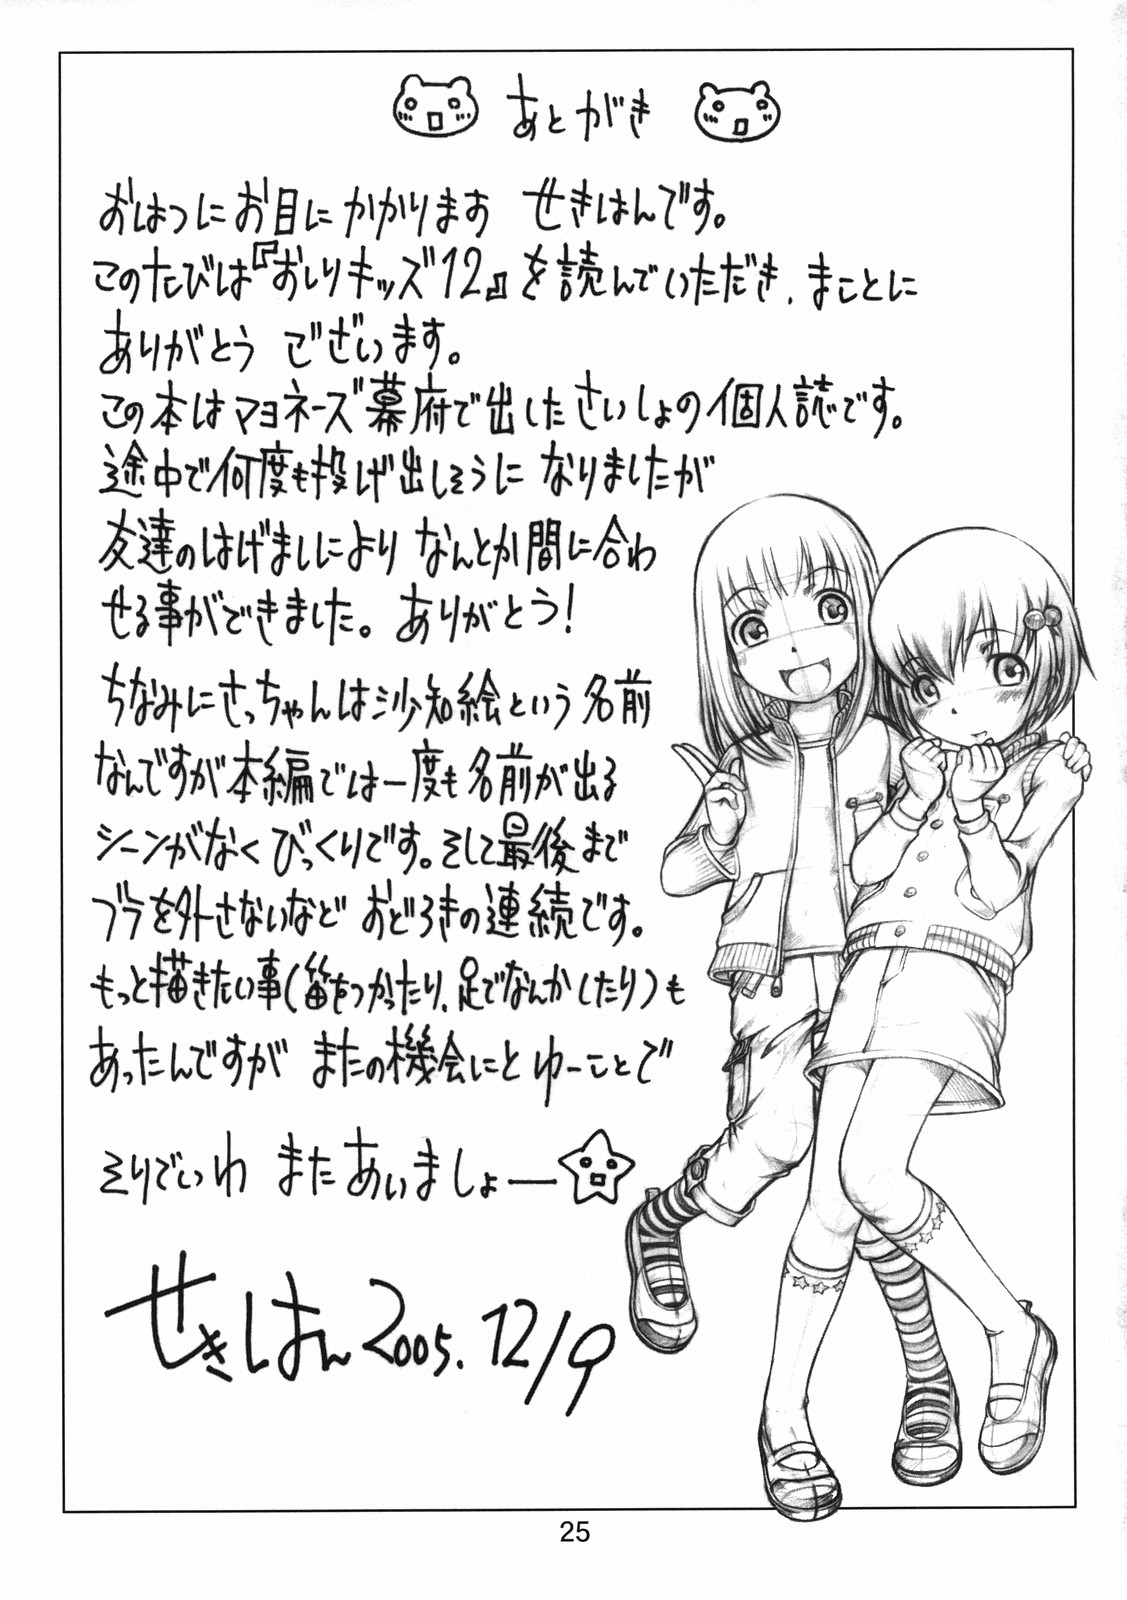 あとがき
おはつにお目にかかります せきはんです。
このたびは『おしりキッズ12』を読んでいただき、まことに
ありがとう ございます。
この本はマヨネーズ幕府で出したさいしょの個人誌です。
途中で何度も投げ出しそうに なりましたが
友達のはげましにより なんとか間に合わ
せる事ができました。ありがとう!
ちなみにさっちゃんは沙知絵という名前
なんですが本編では一度も名前が出る
シーンがなくびっくりです。そして最後まで
ブラを外さないなど おどろきの連続です。
もっと描きたい事(笛をつかったり、足でなんかしたり)も
あったんですが またの機会にと ゆーことで
そりでいわ またあいましょー
せきはん 2005.12/9
25